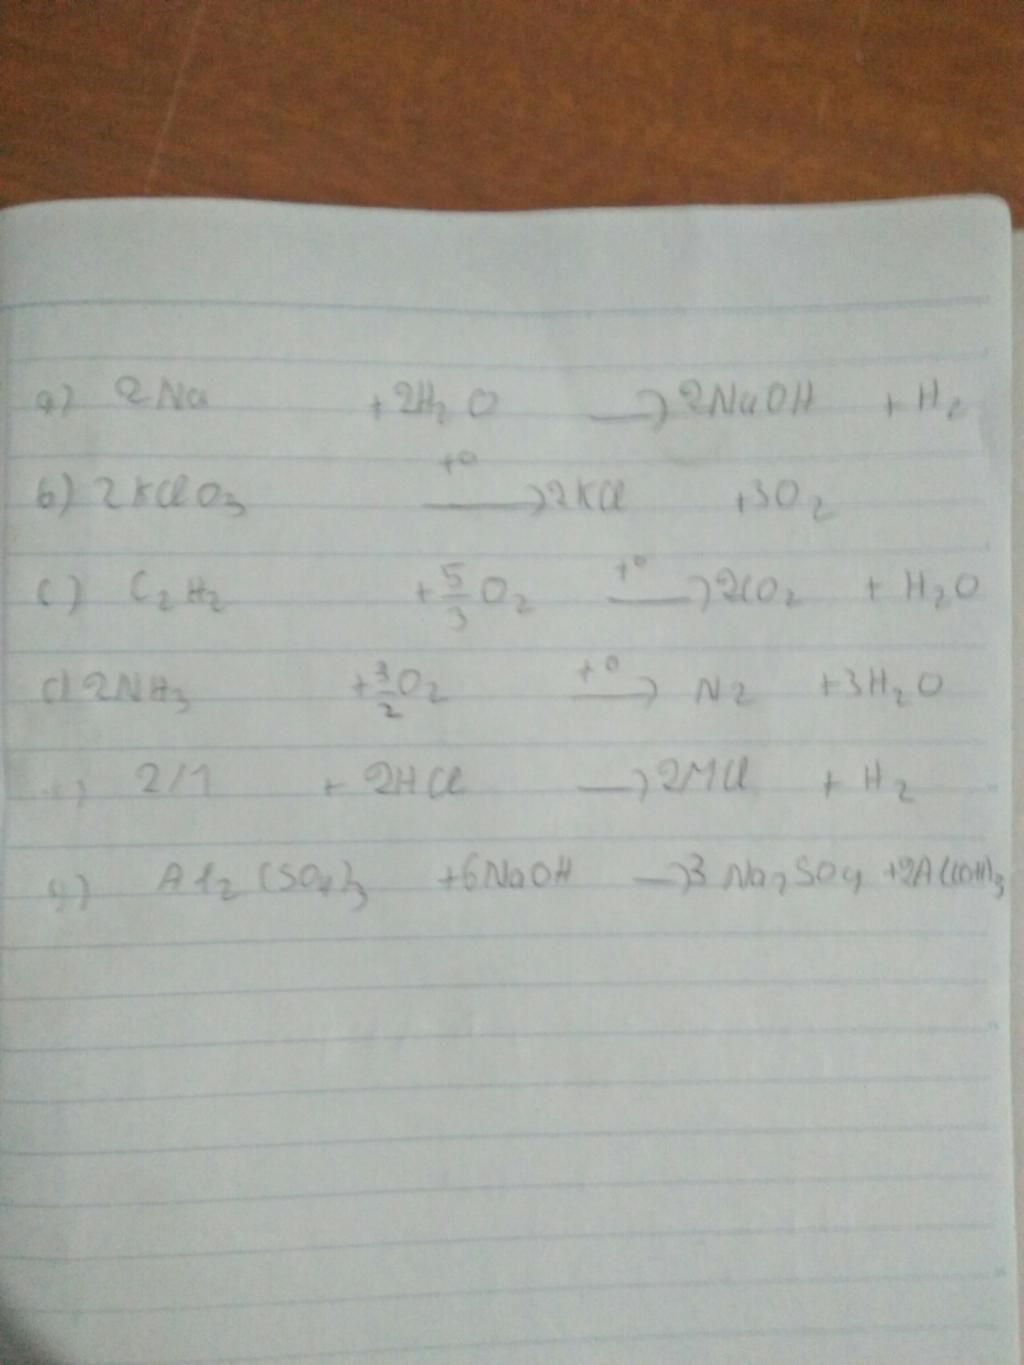 a) 2Na + 2H₂O → 2NaOH + H₂
b) 2KClO₃ →(t°) 2KCl + 3O₂
c) C₂H₂ + 5/3 O₂ →(t°) 2CO₂ + H₂O
d) 2NH₃ + 3/2 O₂ →(t°) N₂ + 3H₂O
2M + 2HCl → 2MCl + H₂
g) Al₂(SO₄)₃ + 6NaOH → 3Na₂SO₄ + 2Al(OH)₃